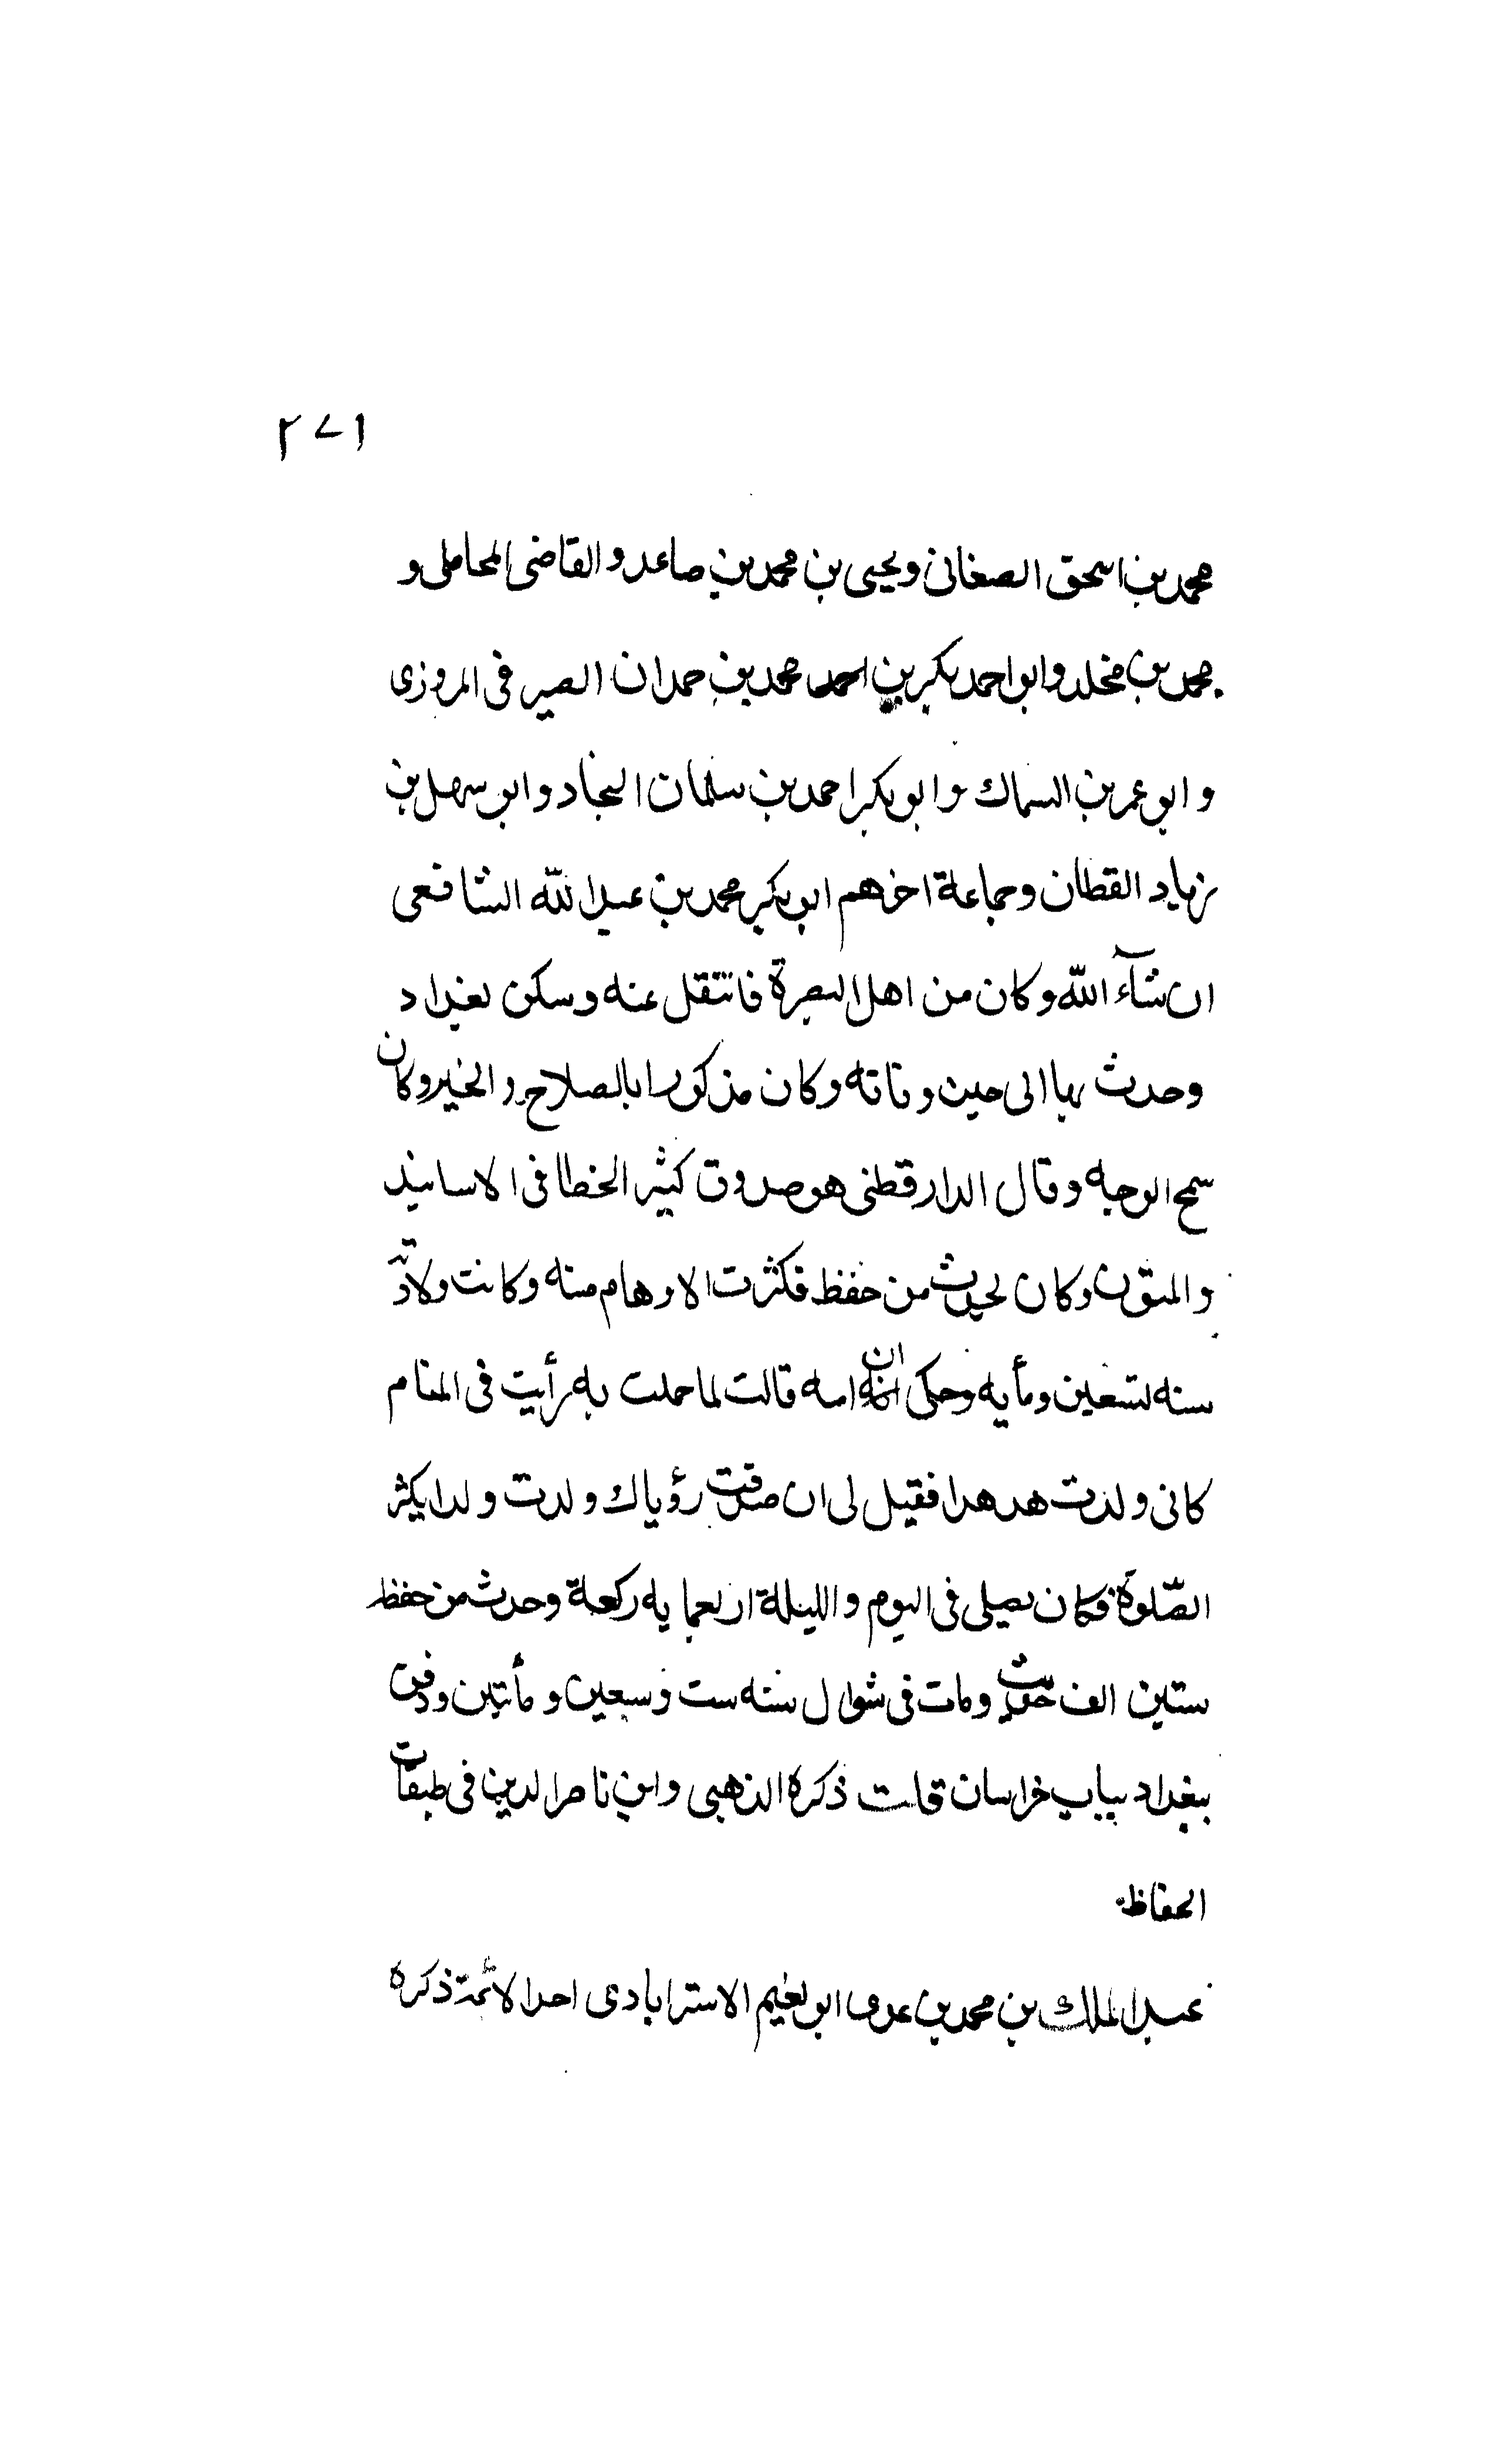 ٢٧١
محمد بن اسحق الصغانى ويحيى بن محمد بن صاعد والقاضى المحاملى و
محمد بن مخلد وابو احمد بكر بن احمد محمد بن حمدان الصيرفى المروزى
و ابو عمر بن السماك وابو بكر احمد بن سلمان النجاد وابو سهل بن
زياد القطان وجماعة اخرهم ابو بكر محمد بن عبد الله الشافعى
ان شآء الله وكان من اهل البصرة فانتقل عنه وسكن بغداد
وحدث بها الى حين وفاته وكان مذكورا بالصلاح والخير وكان
سمح الوجه وقال الدارقطنى هو صدوق كثير الخطا فى الاسانيد
والمتون وكان يحدث من حفظ فكثرت الاوهام منه وكانت ولادته
سنه تسعين ومأيه وحكى ان امه قالت لما حملت به رأيت فى المنام
كانى ولدت هدهدا فقيل لى ان صدقت رؤياك ولدت ولدا يكثر
الصّلوة فكان يصلى فى اليوم والليلة اربعمايه ركعة وحدث من حفظ
ستين الف حديث ومات فى شوال سنه ست وسبعين ومأتين ودفن
ببغداد بباب خراسان قلت ذكره الذهبى وابن ناصر الدين فى طبقات
الحفاظ
عبد الملك بن محمد بن عدى ابو نعيم الاسترابادى احد الائمة ذكره